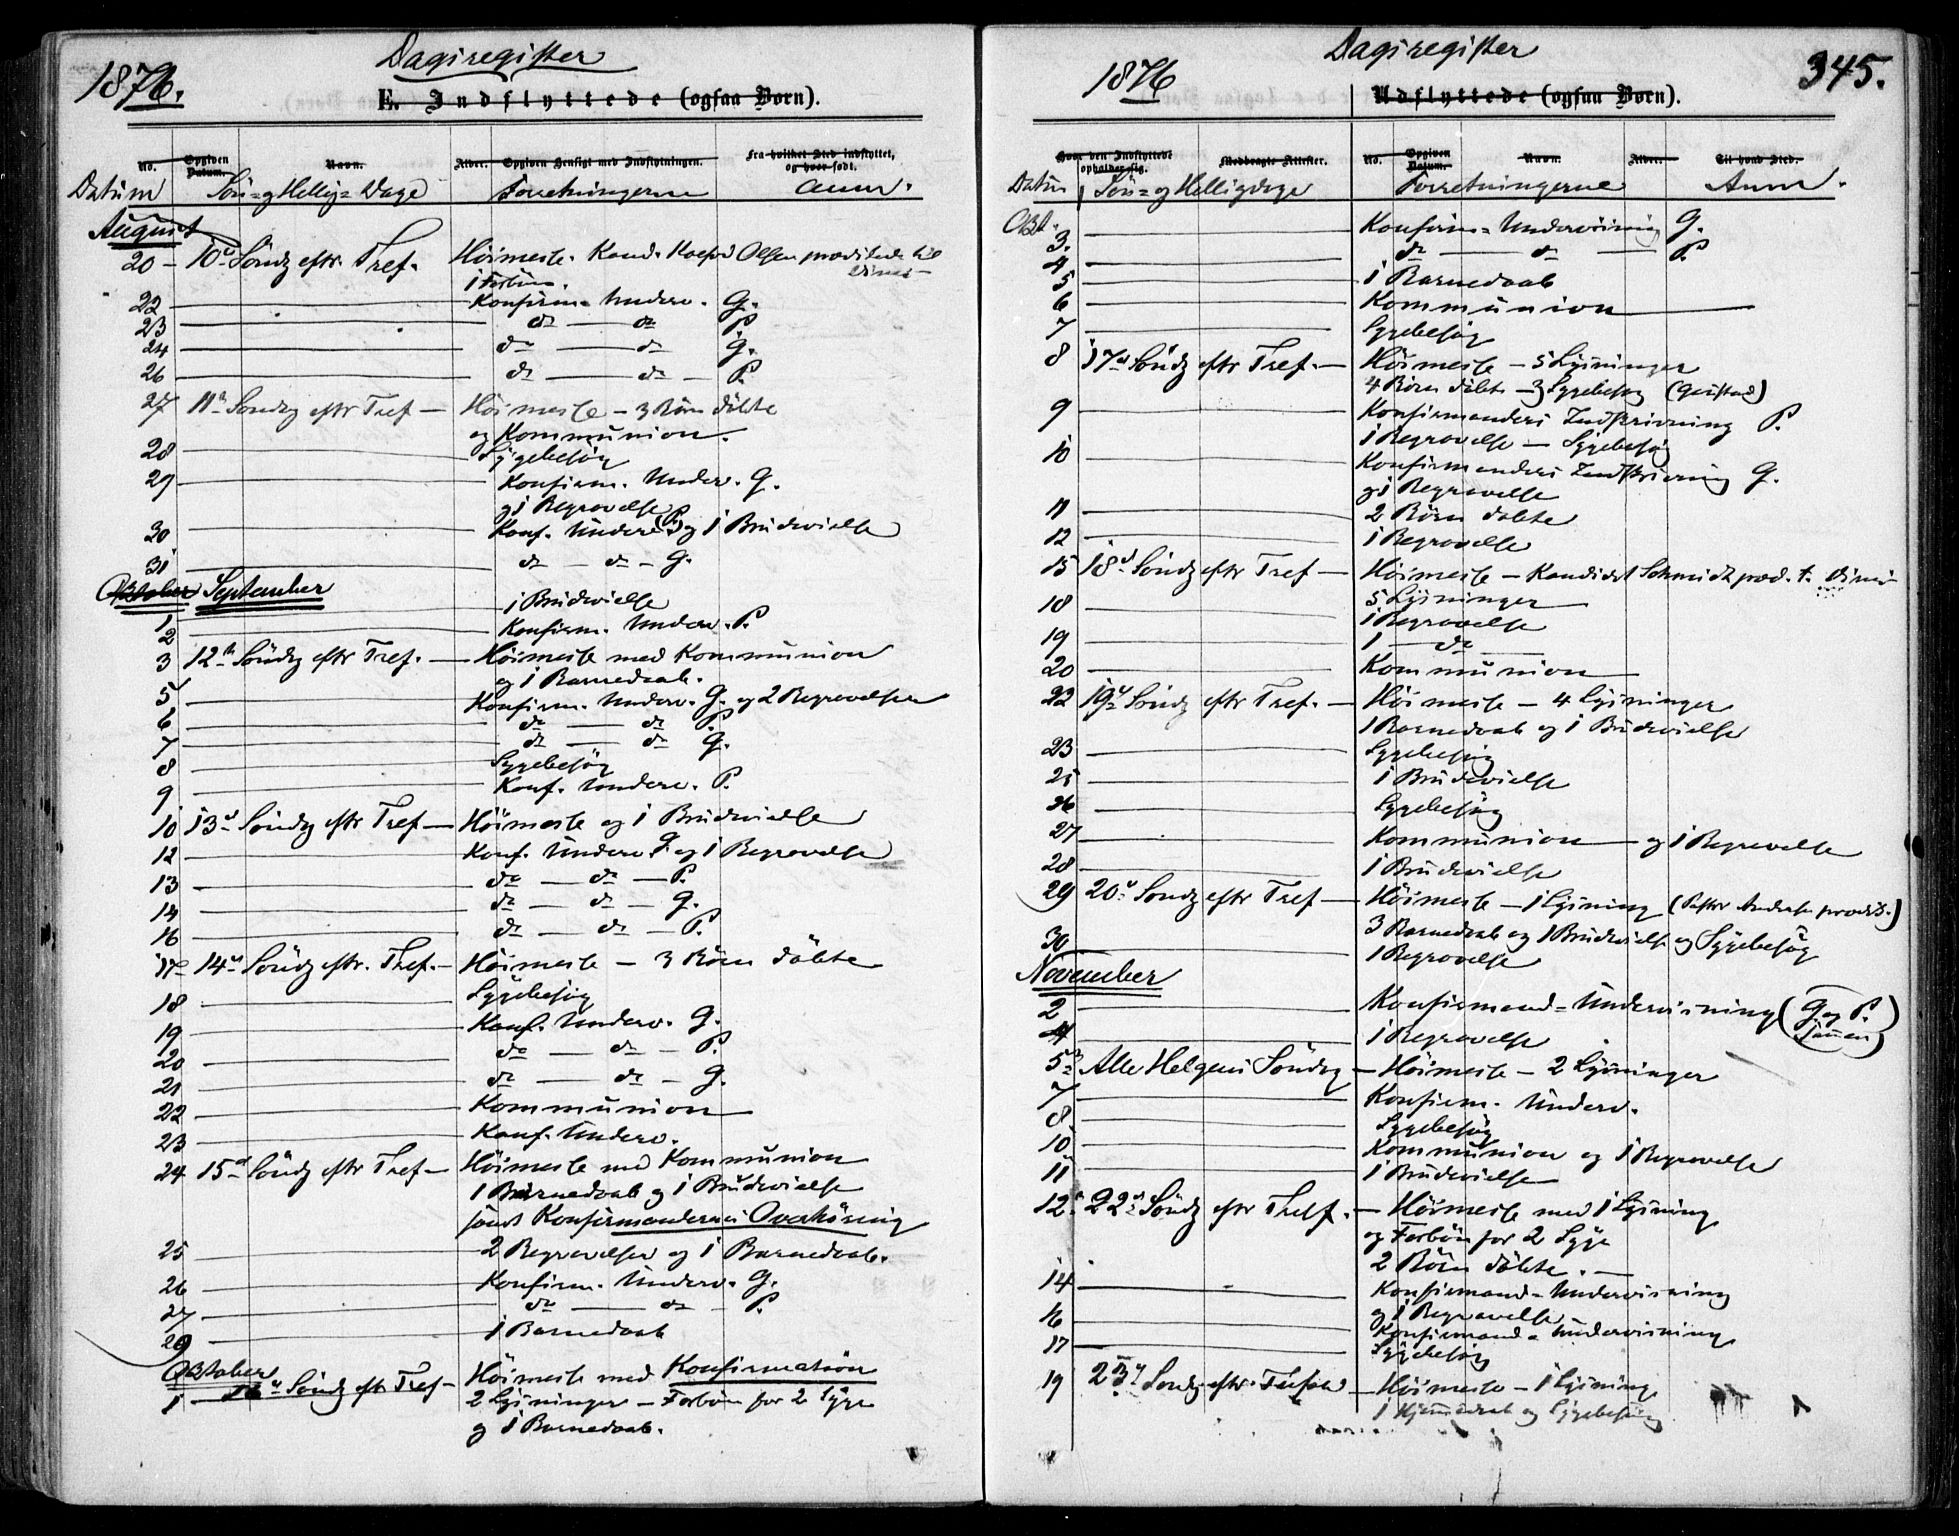 1876.
Dagsregister
E. Indflyttede (ogsaa Børn).
No.
Opgiven Datum.
Navn.
Alder.
Opgiven Hensigt med Indflytningen.
Fra hvilket Sted indflyttet, og hvor født.
Datum Søn- og Hellig-Dage Forretningerne Anm.
August
20 – 10de Søndg eftr Tref. Høimesse. Kand. Olsen prædikede til Dimis–
1 Forbøn.
22 Konfirm. Underv. G.
23 do — do P.
24 do — do G.
26 do — do – P.
27 11te Søndg eftr Tref – Høimesse – 3 Børn døbte
og Kommunion.
28 Sygebesøg
29 Konfirm. Underv. G.
og 1 Begravelse
30 Konf. Underv. (P.) og 1 Brudevielse
31 do – do – G.
Oktober September
1 1 Brudevielse
2 Konfirm. Underv. P.
3 12te Søndg eftr Tref. — Høimesse med Kommunion
og 1 Barnedaab.
5 Konfirm. Underv. G. og 2 Begravelser
6 do — do P.
7 do — do G.
8 Sygebesøg
9 Konf. Underv. P.
10 13de Søndg eftr Tref — Høimesse og 1 Brudevielse
12 Konf. Underv. G. og 1 Begravelse
13 do — do — P.
14 do — do – G.
16 do — do – P.
17de 14de Søndg eftr. Tref. – Høimesse – 3 Børn døbte
18 Sygebesøg
19 Konf. Underv. G.
20 do — do – P.
21 do — do – G.
22 Kommunion
23 Konf. Underv.
24 15de Søndg eftr Tref – Høimesse med Kommunion
1 Barnedaab og 1 Brudevielse
samt Konfirmandernes Overhøring
25 2 Begravelser og 1 Barnedaab.
26 Konfirm. Underv. G.
27 do — do – P.
29 1 Barnedaab
Oktober
1 – 16de Søndg eftr Tref – Høimesse med Konfirmation
2 Lysninger – Forbøn for 2 Syge
og 1 Barnedaab.
1876
Dagsregister
345.
Udflyttede (ogsaa Børn).
Hvor den Indflyttede opholder sig.
Medbragte Attester.
No.
Opgiven Datum.
Navn.
Alder.
Til hvad Sted.
Datum Søn- og Helligdage Forretningerne Anm.
Okt.
3. Konfirm-Undervisning G.
4 do — do — P.
5 1 Barnedaab
6 Kommunion
7 Sygebesøg
8 17de Søndg eftr Tref. — Høimesse – 5 Lysninger
4 Børn døbte – 3 Sygebesøg
9 Konfirmanders Indskrivning P.
1 Begravelse – Sygebesøg
10 Konfirmanders Indskrivning G.
og 1 Begravelse
11 2 Børn døbte
12 1 Begravelse
15 18de Søndg eftr Tref — Høimesse – Kandidat Schmidt præd. t. Dimis
5 Lysninger
18 1 Begravelse
19 1 — do —
20 Kommunion
22 19de Søndg eftr Tref. — Høimesse – 4 Lysninger
1 Barnedaab og 1 Brudevielse
23 Sygebesøg
25 1 Brudevielse
26 Sygebesøg
27 Kommunion — og 1 Begravelse
28 1 Brudevielse
29 20de Søndg eftr Tref — Høimesse – 1 Lysning
3 Barnedaab og 1 Brudevielse og Sygebesøg
30 1 Begravelse
November
2 Konfirmand-Undervisning (G. og P. sammen)
4 1 Begravelse
5te Alle Helgens Søndag – Høimesse – 2 Lysninger
7 Konfirm. Underv.
8 Sygebesøg
10 Kommunion og 1 Begravelse
11 1 Brudevielse
12te 22de Søndg eftr Tref. — Høimesse med 1 Lysning
og Forbøn for 2 Syge
2 Børn døbte. —
14 Konfirmand-Undervisning
og 1 Begravelse
16 Konfirmand-Undervisning
17 Sygebesøg
19 23de Søndg eftr. — Høimesse – 1 Lysning
1 Hjemmedaab og Sygebesøg